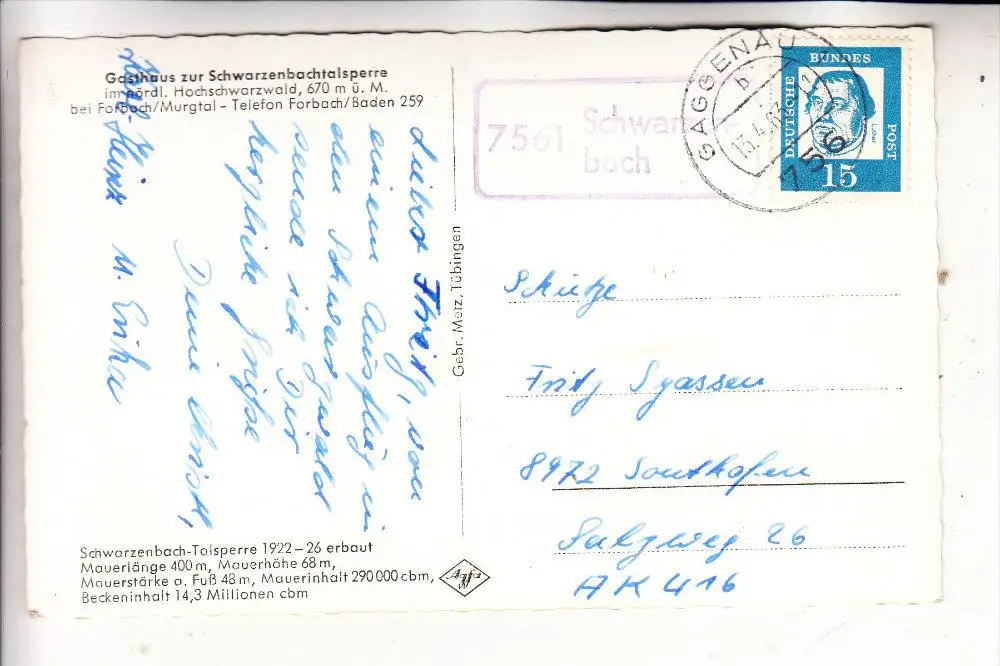 Gasthaus zur Schwarzenbachtalsperre
im nördl. Hochschwarzwald, 670 m ü. M.
bei Forbach/Murgtal - Telefon Forbach/Baden 259
Lieber Fritz, von
einem Ausflug in
den Schwarzwald
sende ich Dir
herzliche Grüße
Deine Christl,
u. Erika
Karl-Heinz
Schwarzenbach-Talsperre 1922-26 erbaut
Mauerlänge 400 m, Mauerhöhe 68 m,
Mauerstärke a. Fuß 48 m, Mauerinhalt 290 000 cbm,
Beckeninhalt 14,3 Millionen cbm
Agfa
Gebr. Metz, Tübingen
7561 Schwarzen-
bach
GAGGENAU
b
756
DEUTSCHE
BUNDES
POST
Luther
15
Schütze
Fritz Syassen
8972 Sonthofen
Salzweg 26
AK 416